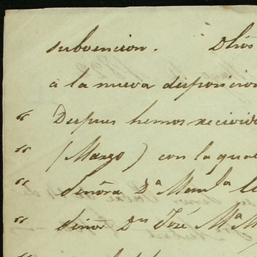 subvencion. Dhos
á la nueva disposicion
" Despues hemos recivido
" (Marzo) con la que
" Señora Dª Manla
" Señor Dn José Mª M
"